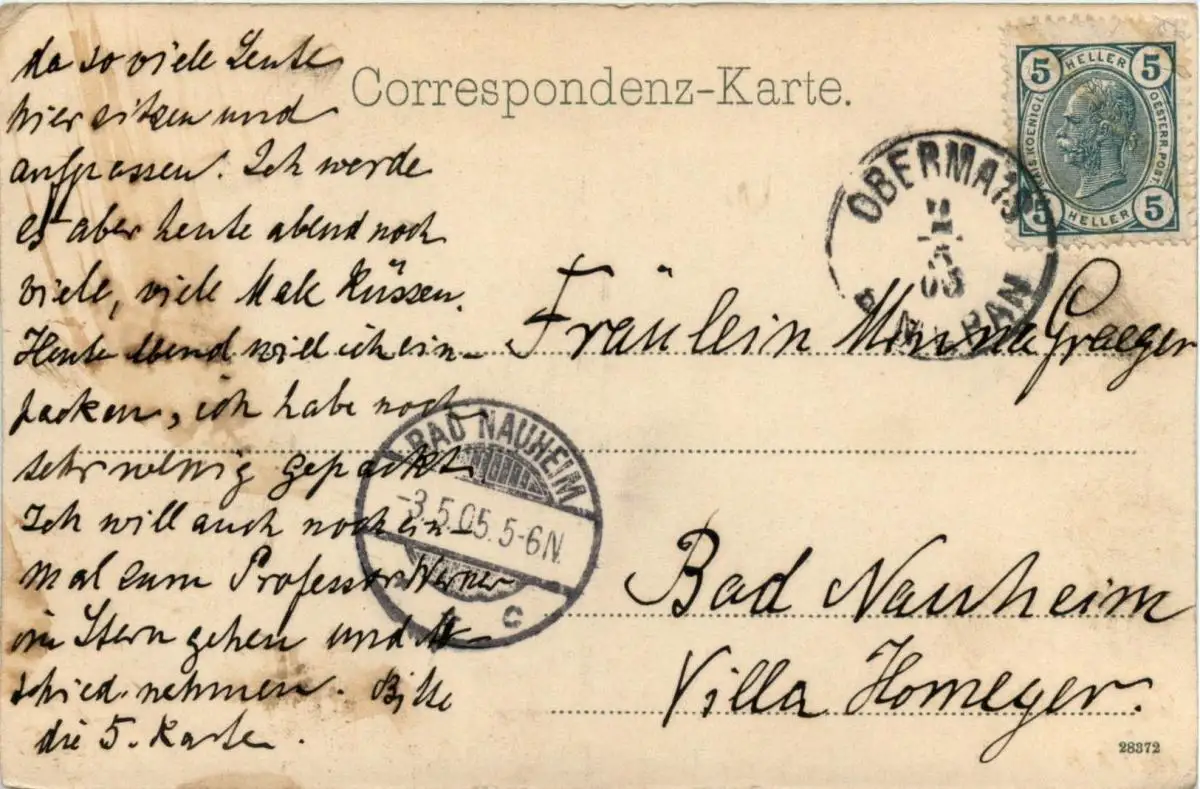 da so viele Leute
hier sitzen und
aufpassen. Ich werde
es aber heute abend noch
viele, viele Male Küssen.
Heute Abend will ich ein-
packen, ich habe noch
sehr wenig gepackt.
Ich will auch noch ein-
mal zum Professor Werner
im Stern gehen und Ab-
schied nehmen. Bitte
die 5. Karte.
Correspondenz-Karte.
5 HELLER 5
KAIS. KOENIGL. OESTERR. POST.
5 HELLER 5
OBERMAIS
05
B. MERAN
Fräulein Minna Graeger
BAD NAUHEIM
-3.5.05.5-6N.
C
Bad Nauheim
Villa Homeyer.
28372